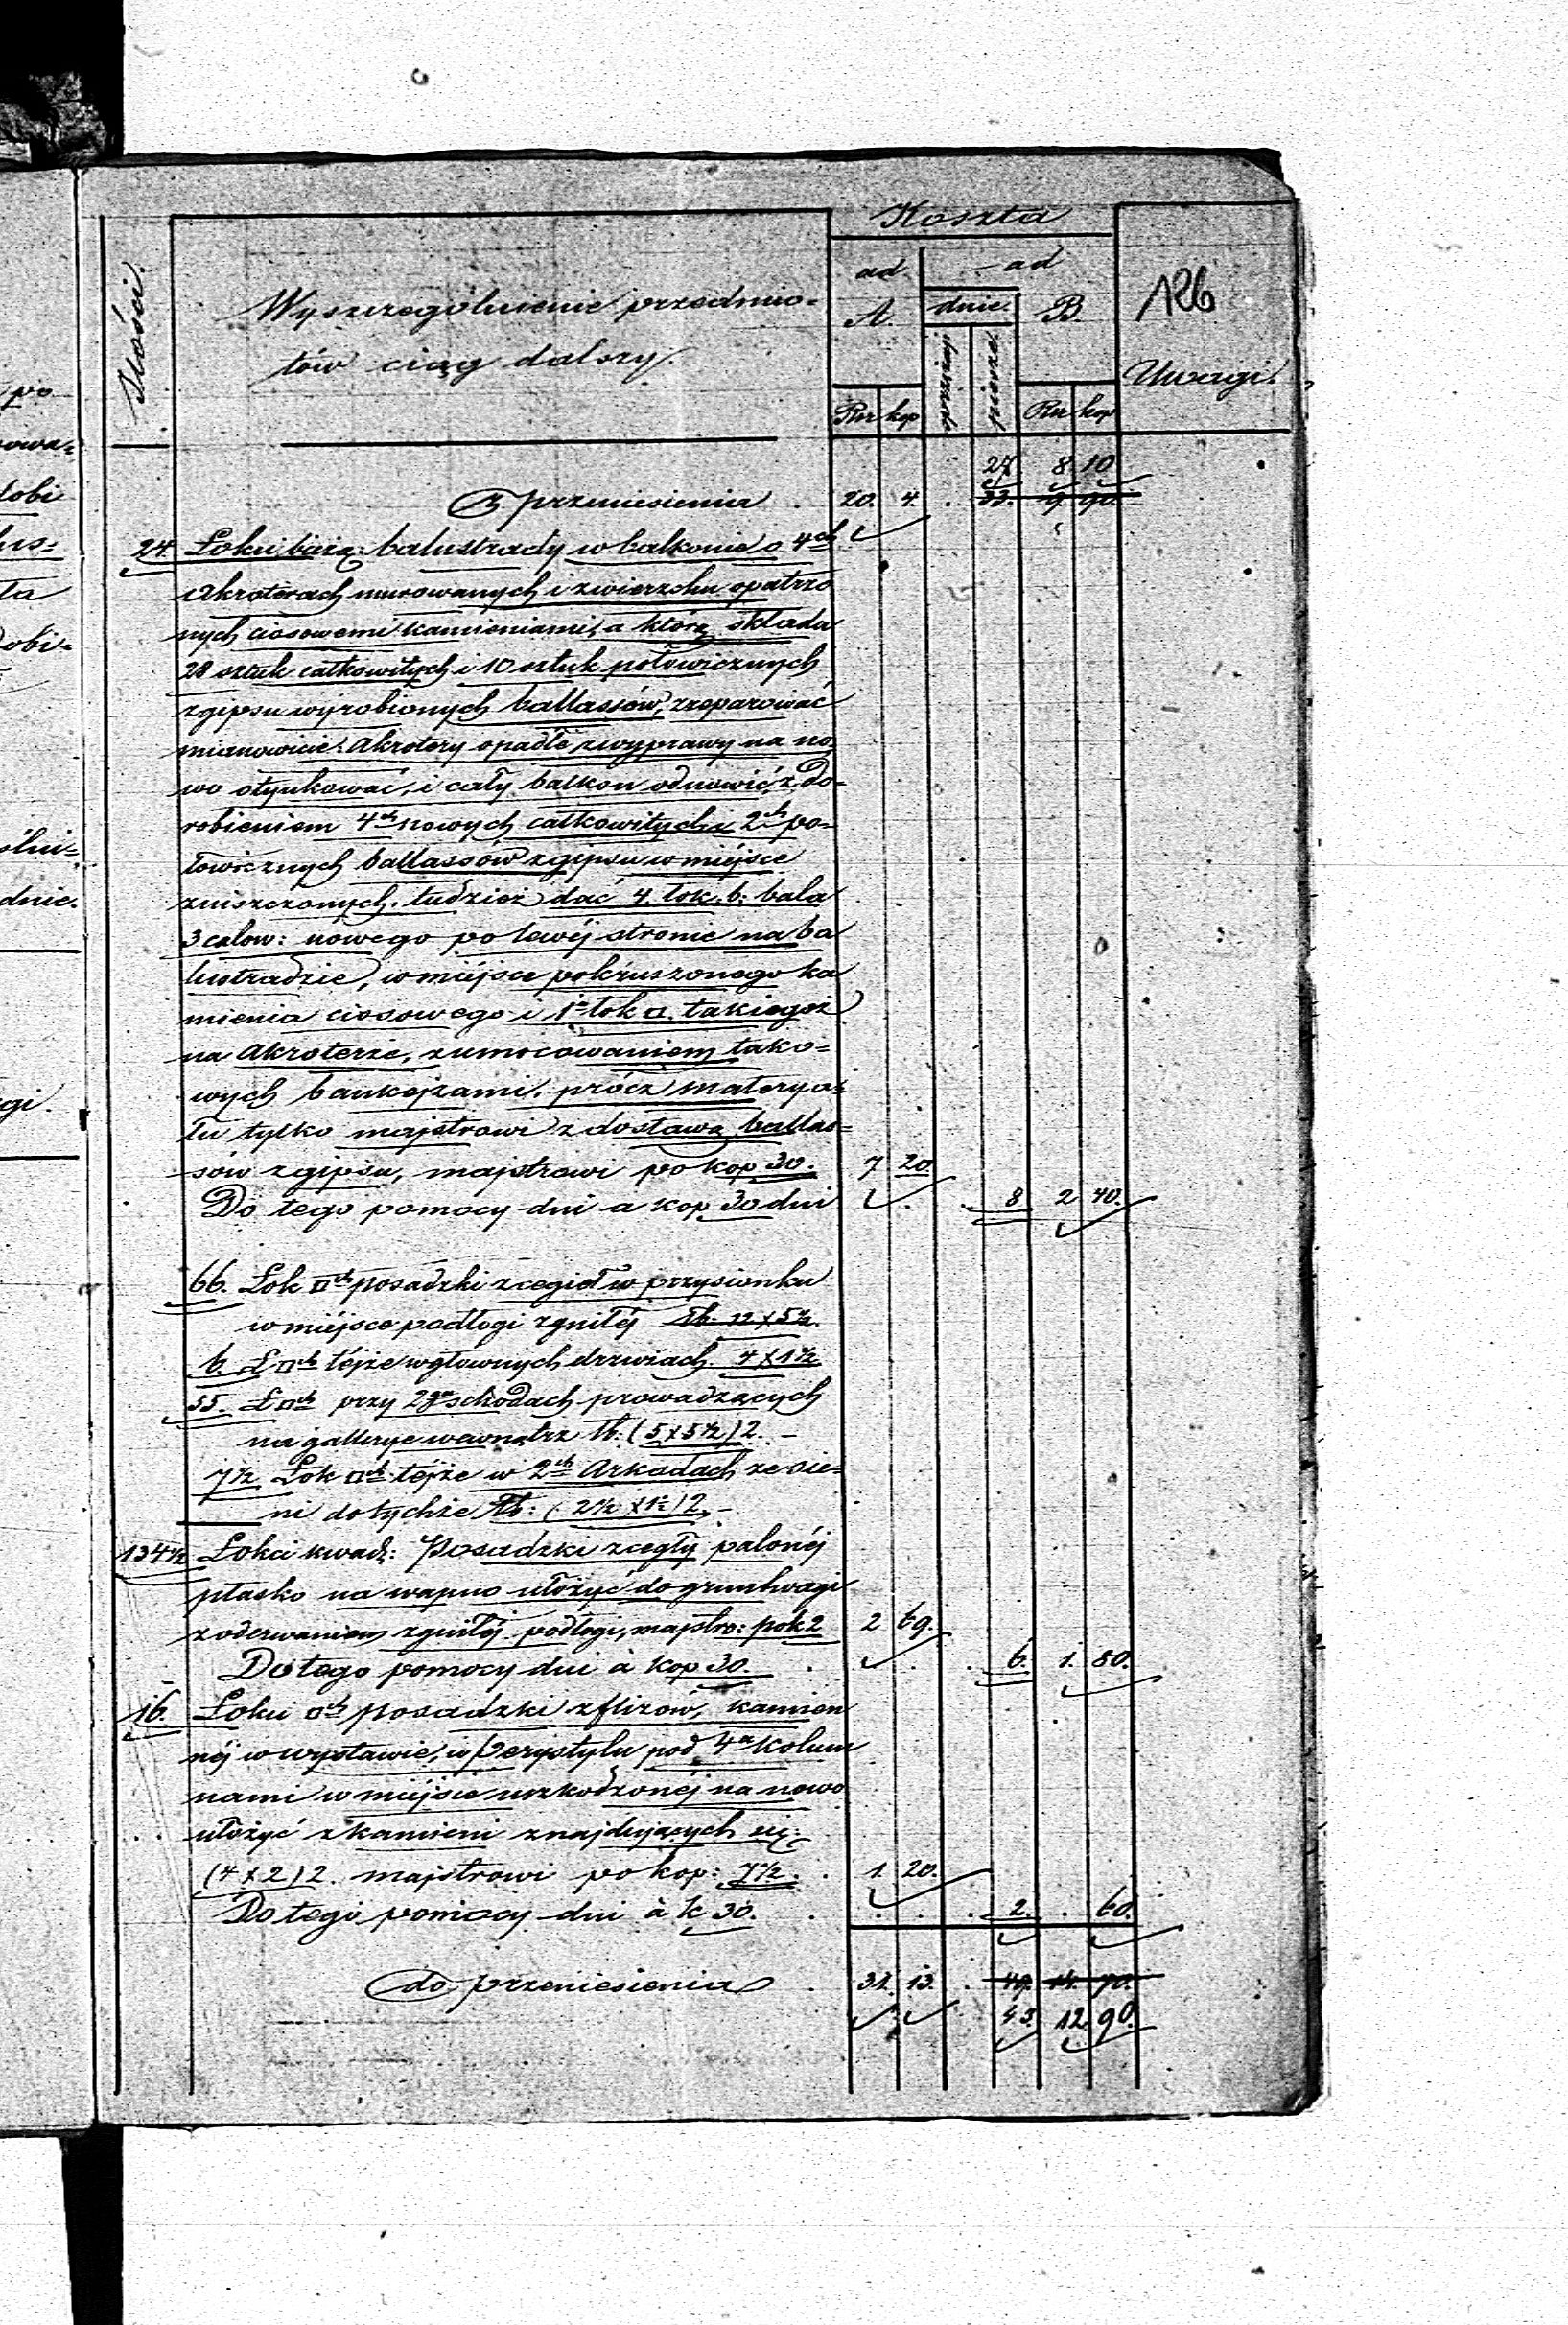 Koszta
126
Ilości.
Wyszczególnienie przedmio-
tów ciąg dalszy.
ad A.
ad dnie. B.
sprzężaj. piesze.
Rsr kop
Rsr kop
Uwagi.
27 8 10
Z przeniesienia . 20. 4. . 33. 9. 90.
24 Łokci bieżą: balustrady w balkonie o 4ch
akroterach murowanych i zwierzchu opatrzo
nych ciosowemi kamieniami, a którą składa
28 sztuk całkowitych i 10 sztuk połowicznych
zgipsu wyrobionych ballassów, zreparować
mianowicie: Akrotery opadłe zwyprawy na no
wo otynkować, i cały balkon odnowić, z do-
robieniem 4ch nowych całkowitych i 2ch po-
łowicznych ballassów zgipsu w miejsce
zniszczonych. tudzież dać 4. łok. b: bala
3 calow: nowego po lewéj stronie na ba
lustradzie, w miéjsce pokruszonego ka
mienia ciosowego i 1n łok □. takiegoż
na Akroterze, zumocowaniem tako-
wych bankejzami. prócz materya-
łu tylko majstrowi z dostawą ballas-
sów zgipsu, majstrowi po kop 30. 7 20.
Do tego pomocy dni a kop 30 dni . . 8 2 40.
66. Łok □ch posadzki zcegieł w przysionku
w miéjsce podłogi zgniłéj tb. 12 x 5½.
6. Ł □ch téjże w głównych drzwiach. 4 x 1½
55. Ł □ch przy 2ga schodach prowadzących
na galleryę wewnątrz tb: (5 x 5½) 2. -
7½ Łok □ch téjże w 2ch Arkadach ze sie-
ni do tychże tb: (2½ x 1½) 2. -
134½ Łokci kwad: Posadzki zcegły palonéj
płasko na wapno ułożyć do gruntwagi
z oderwaniem zgniłéj podłogi, majstro: po k 2 2 69.
Do tego pomocy dni à kop 30. . . . 6. 1. 80.
16. Łokci □ch posadzki zflizów, kamien
néj w wystawie, w Perystylu pod 4a kolum
nami w miéjsce uszkodzonéj na nowo
ułożyć zkamieni znajdujących się:
(4 x 2) 2. majstrowi po kop: 7½. . 1. 20.
Do tego pomocy dni à k 30. . . . . 2. . 60.
do przeniesienia . 31. 13. . 49. 14. 70.
43. 12 90.